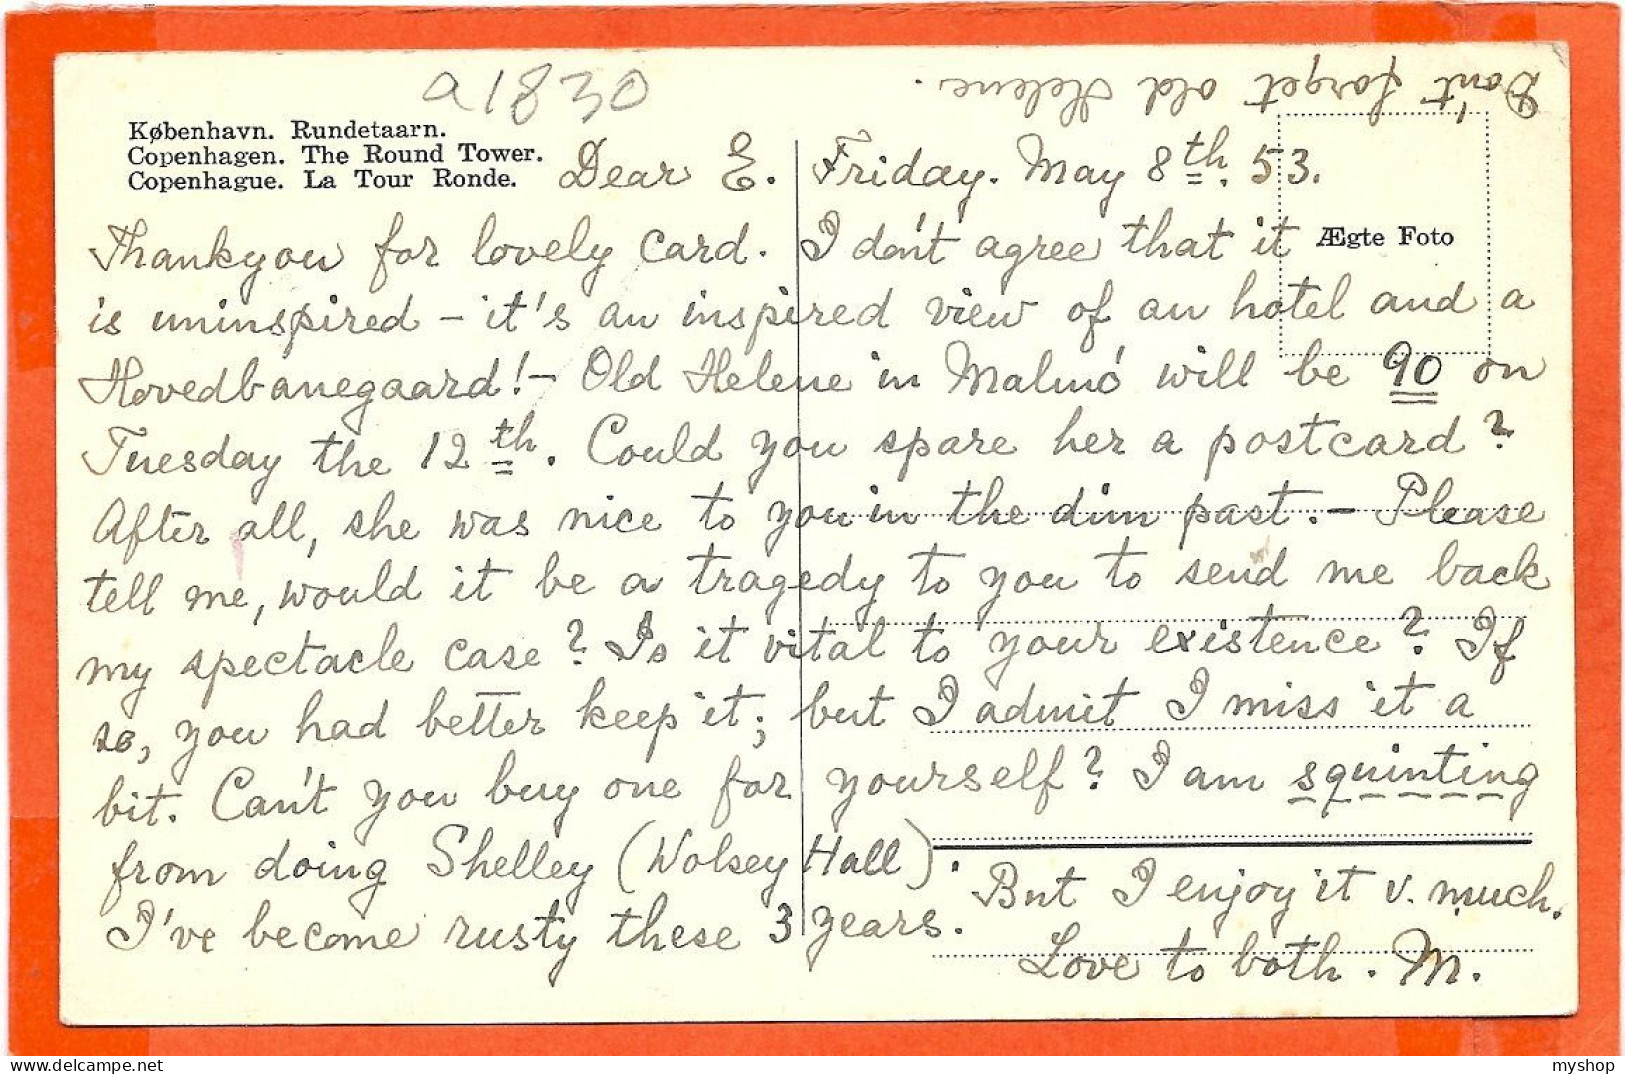 a1830
Don't forget old Helene.
København. Rundetaarn.
Copenhagen. The Round Tower.
Copenhague. La Tour Ronde.
Dear E. Friday. May 8th. 53.
Ægte Foto
Thankyou for lovely card. I don't agree that it
is uninspired – it's an inspired view of an hotel and a
Hovedbanegaard! – Old Helene in Malmö will be 90 on
Tuesday the 12th. Could you spare her a postcard?
After all, she was nice to you in the dim past. – Please
tell me, would it be a tragedy to you to send me back
my spectacle case? Is it vital to your existence? If
so, you had better keep it; but I admit I miss it a
bit. Can't you buy one for yourself? I am squinting
from doing Shelley (Wolsey Hall). But I enjoy it v. much.
I've become rusty these 3 years.
Love to both. M.
myshop